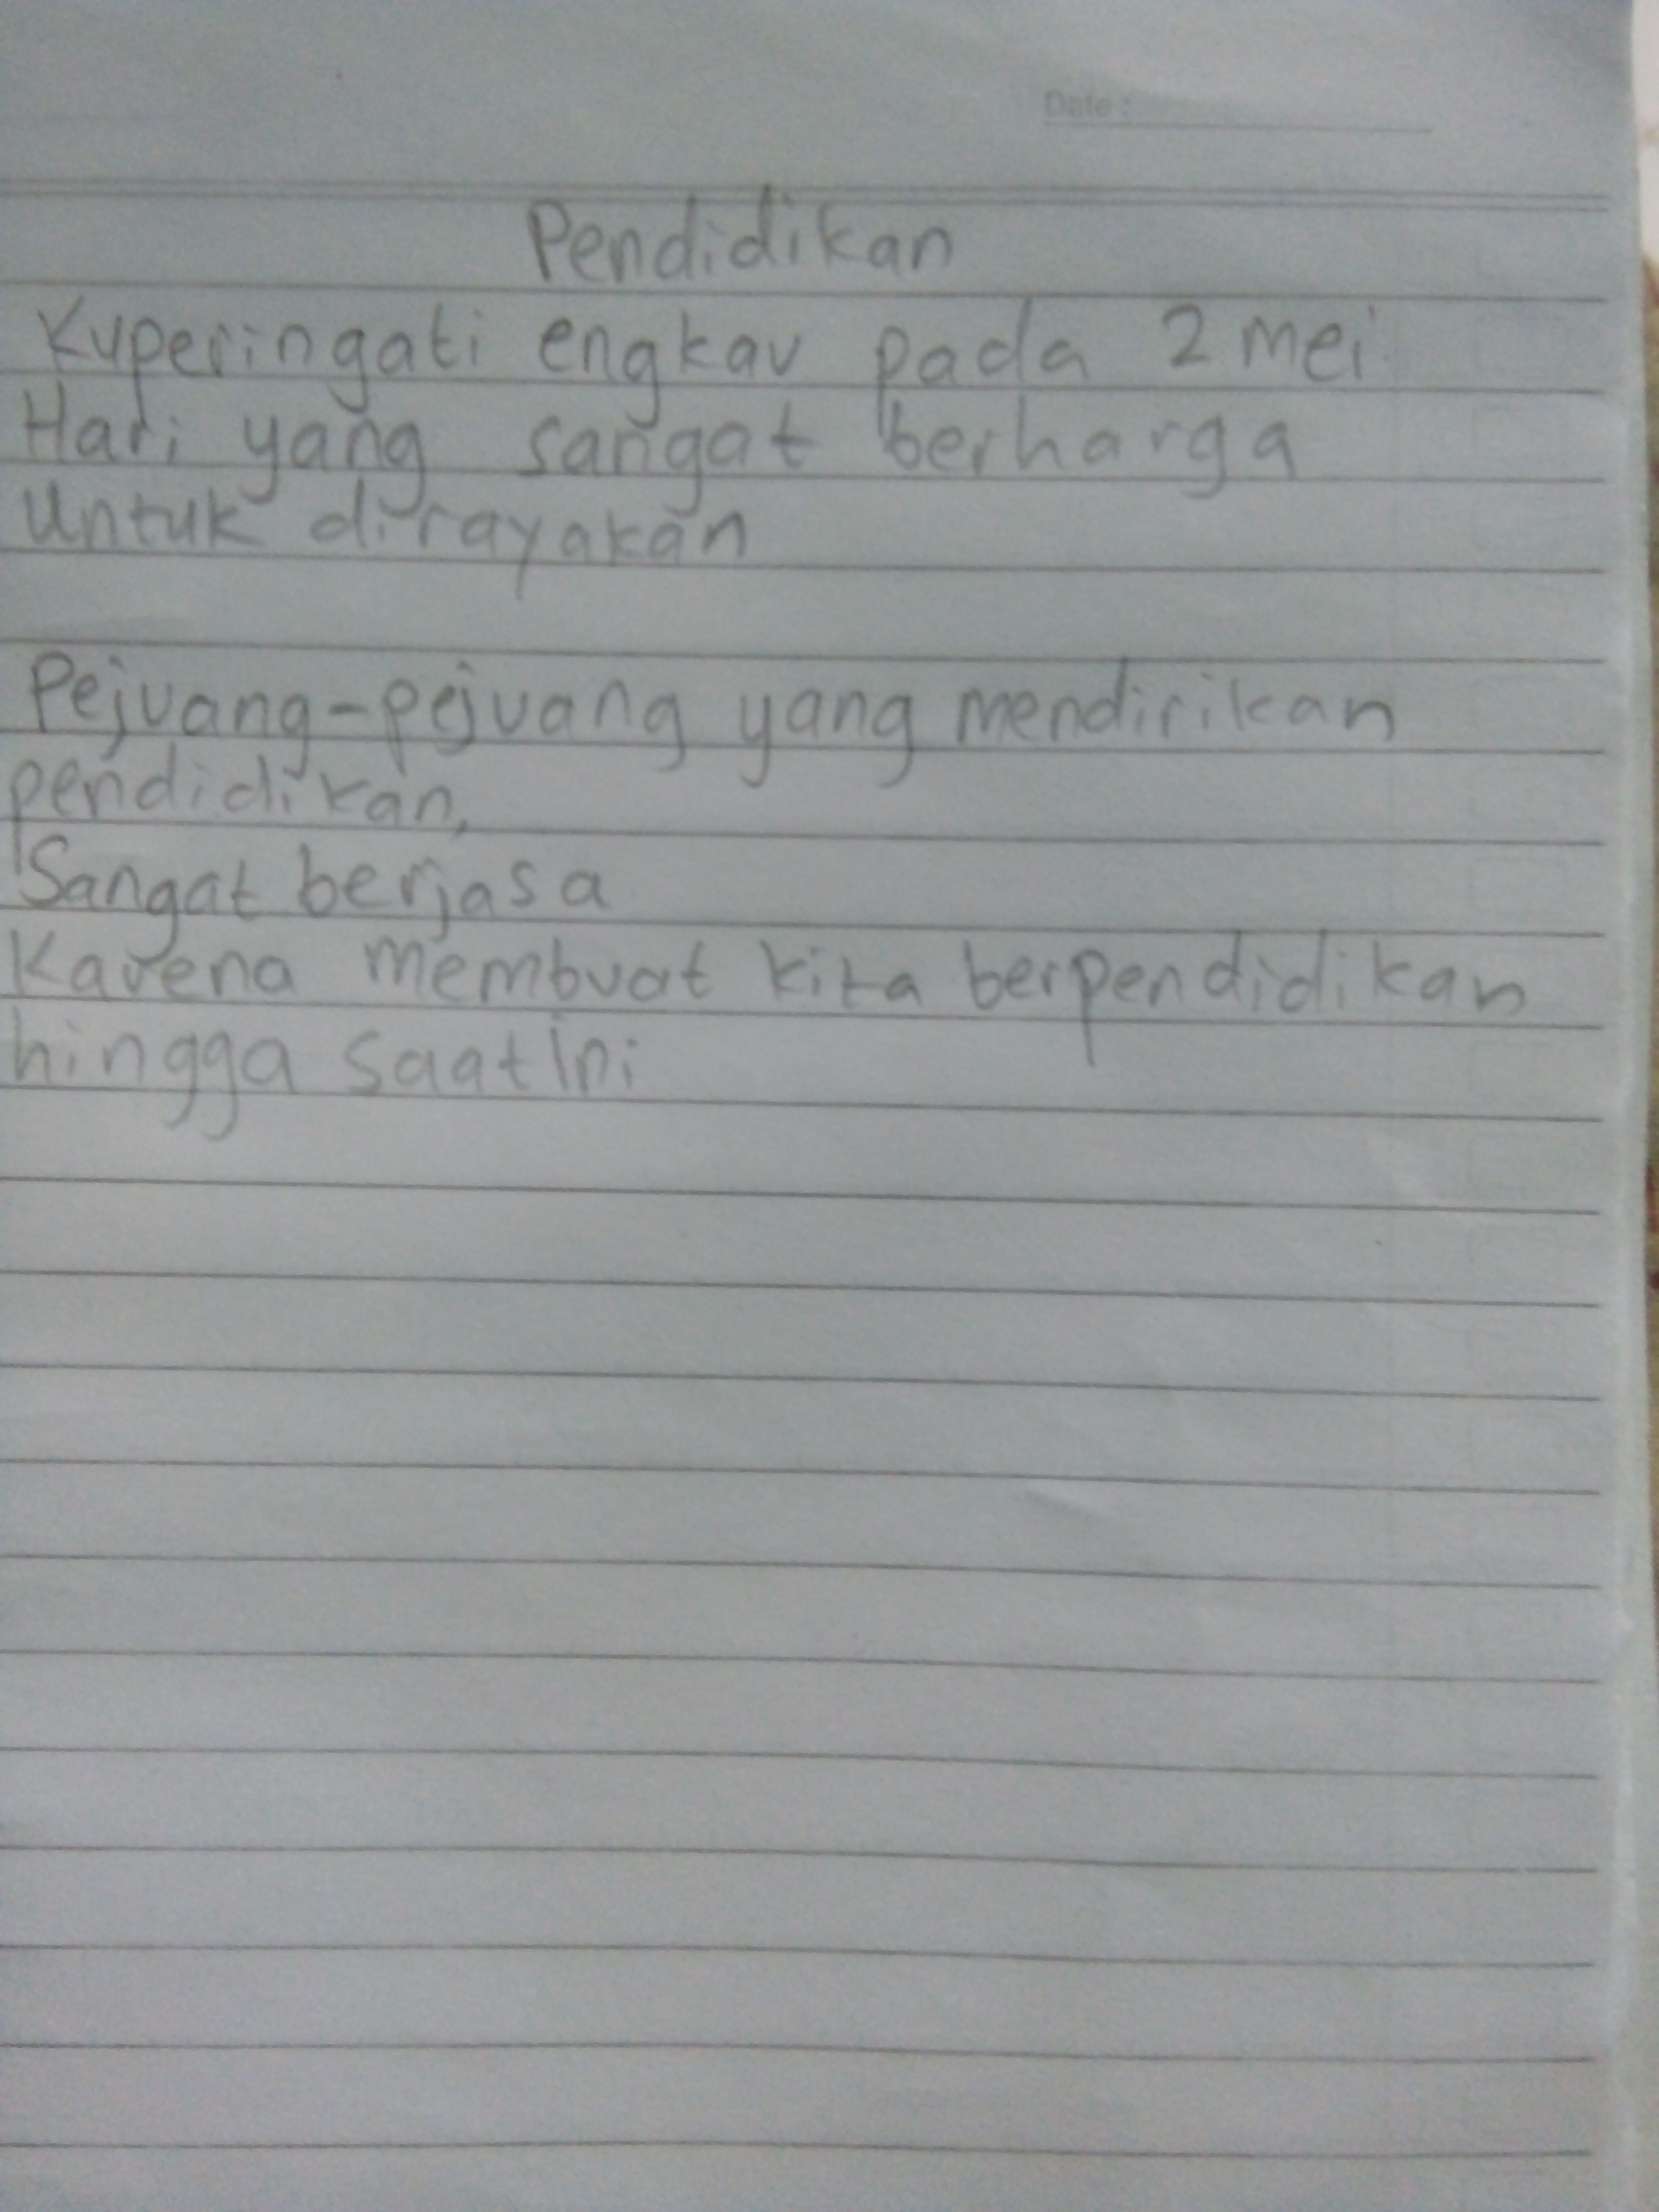 Date :
Pendidikan
Kuperingati engkau pada 2 mei
Hari yang sangat berharga
Untuk dirayakan
Pejuang-pejuang yang mendirikan
pendidikan,
Sangat berjasa
Karena membuat kita berpendidikan
hingga saat ini